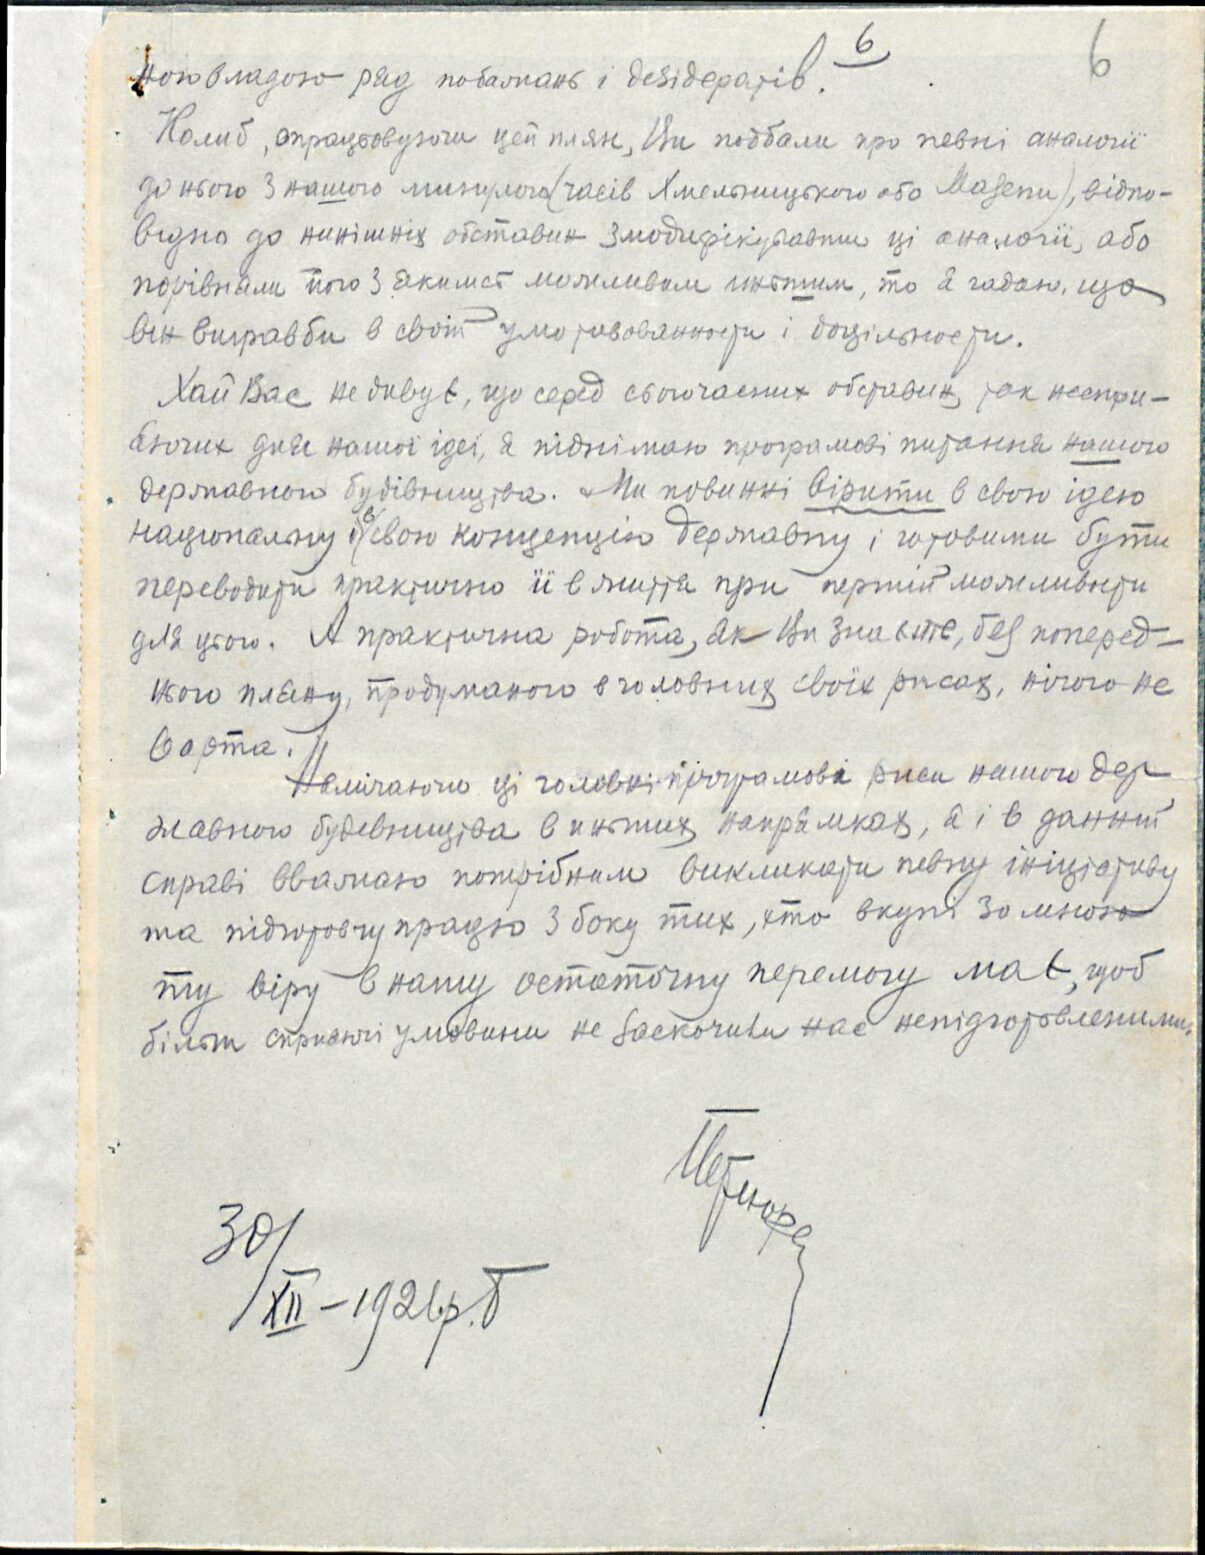 6 6
ною владою ряд побажань і дезідератів.
Колиб, опрацьовуючи цей плян, Ви подбали про певні аналогії
до нього з нашого минулого (часів Хмельницького або Мазепи), відпо-
відно до нинішніх обставин змодифікувавши ці аналогії, або
порівняли його з якимсь можливим иньшим, то я гадаю, що
він вигравби в своїй умотивованности і доцільности.
Хай Вас не дивує, що серед сьогочасних обставин, так несприя-
ючих для нашої ідеї, я піднімаю програмові питання нашого
державного будівництва. Ми повинні вірити в свою ідею
національну й в свою концепцію державну і готовими бути
переводити практично її в життя при першій можливости
для цього. А практична робота, як Ви знаєте, без поперед-
нього пляну, продуманого в головних своїх рисах, нічого не
варта.
Намічаючи ці головні програмові риси нашого дер-
жавного будевництва в иньших напрямках, я і в данній
справі вважаю потрібним викликати певну ініціятиву
та підготовчу працю з боку тих, хто вкупі зо мною
ту віру в нашу остаточну перемогу має, щоб
більш сприяючі умовини не заскочили нас непідготовленими.
Петлюра
30/XII – 1921 р. Б